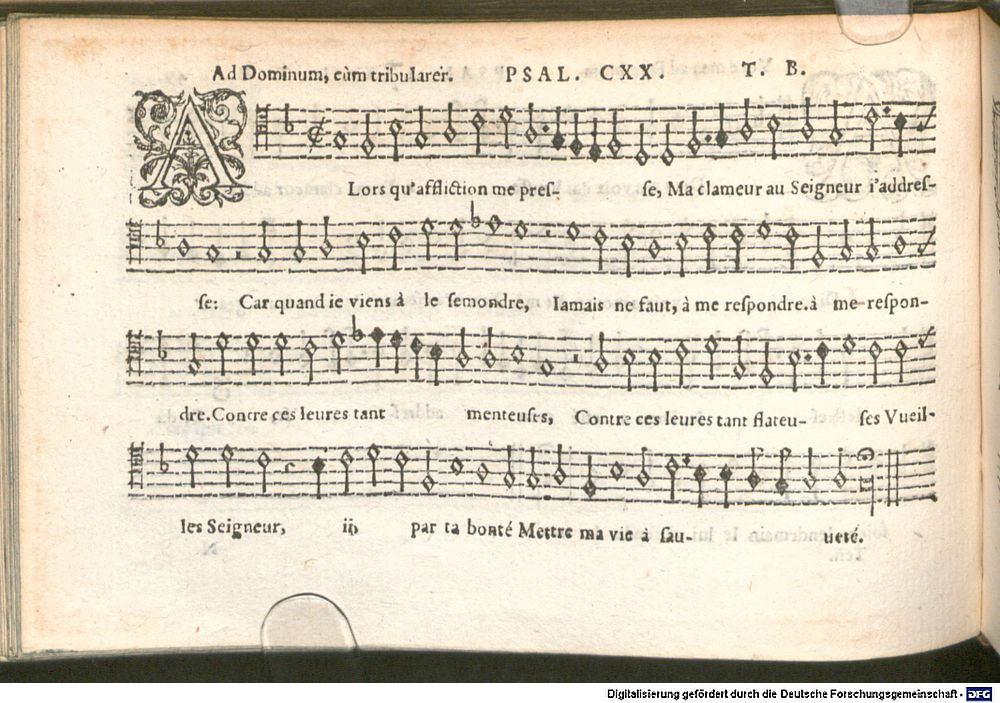 Ad Dominum, cùm tribularer. PSAL. CXX. T. B.
A Lors qu'affliction me pres- se, Ma clameur au Seigneur i'addres-
se: Car quand ie viens à le semondre, Iamais ne faut, à me respondre. à me respon-
dre. Contre ces leures tant menteuses, Contre ces leures tant flateu- ses Vueil-
les Seigneur, ij par ta bonté Mettre ma vie à sau- ueté.
Digitalisierung gefördert durch die Deutsche Forschungsgemeinschaft - DFG